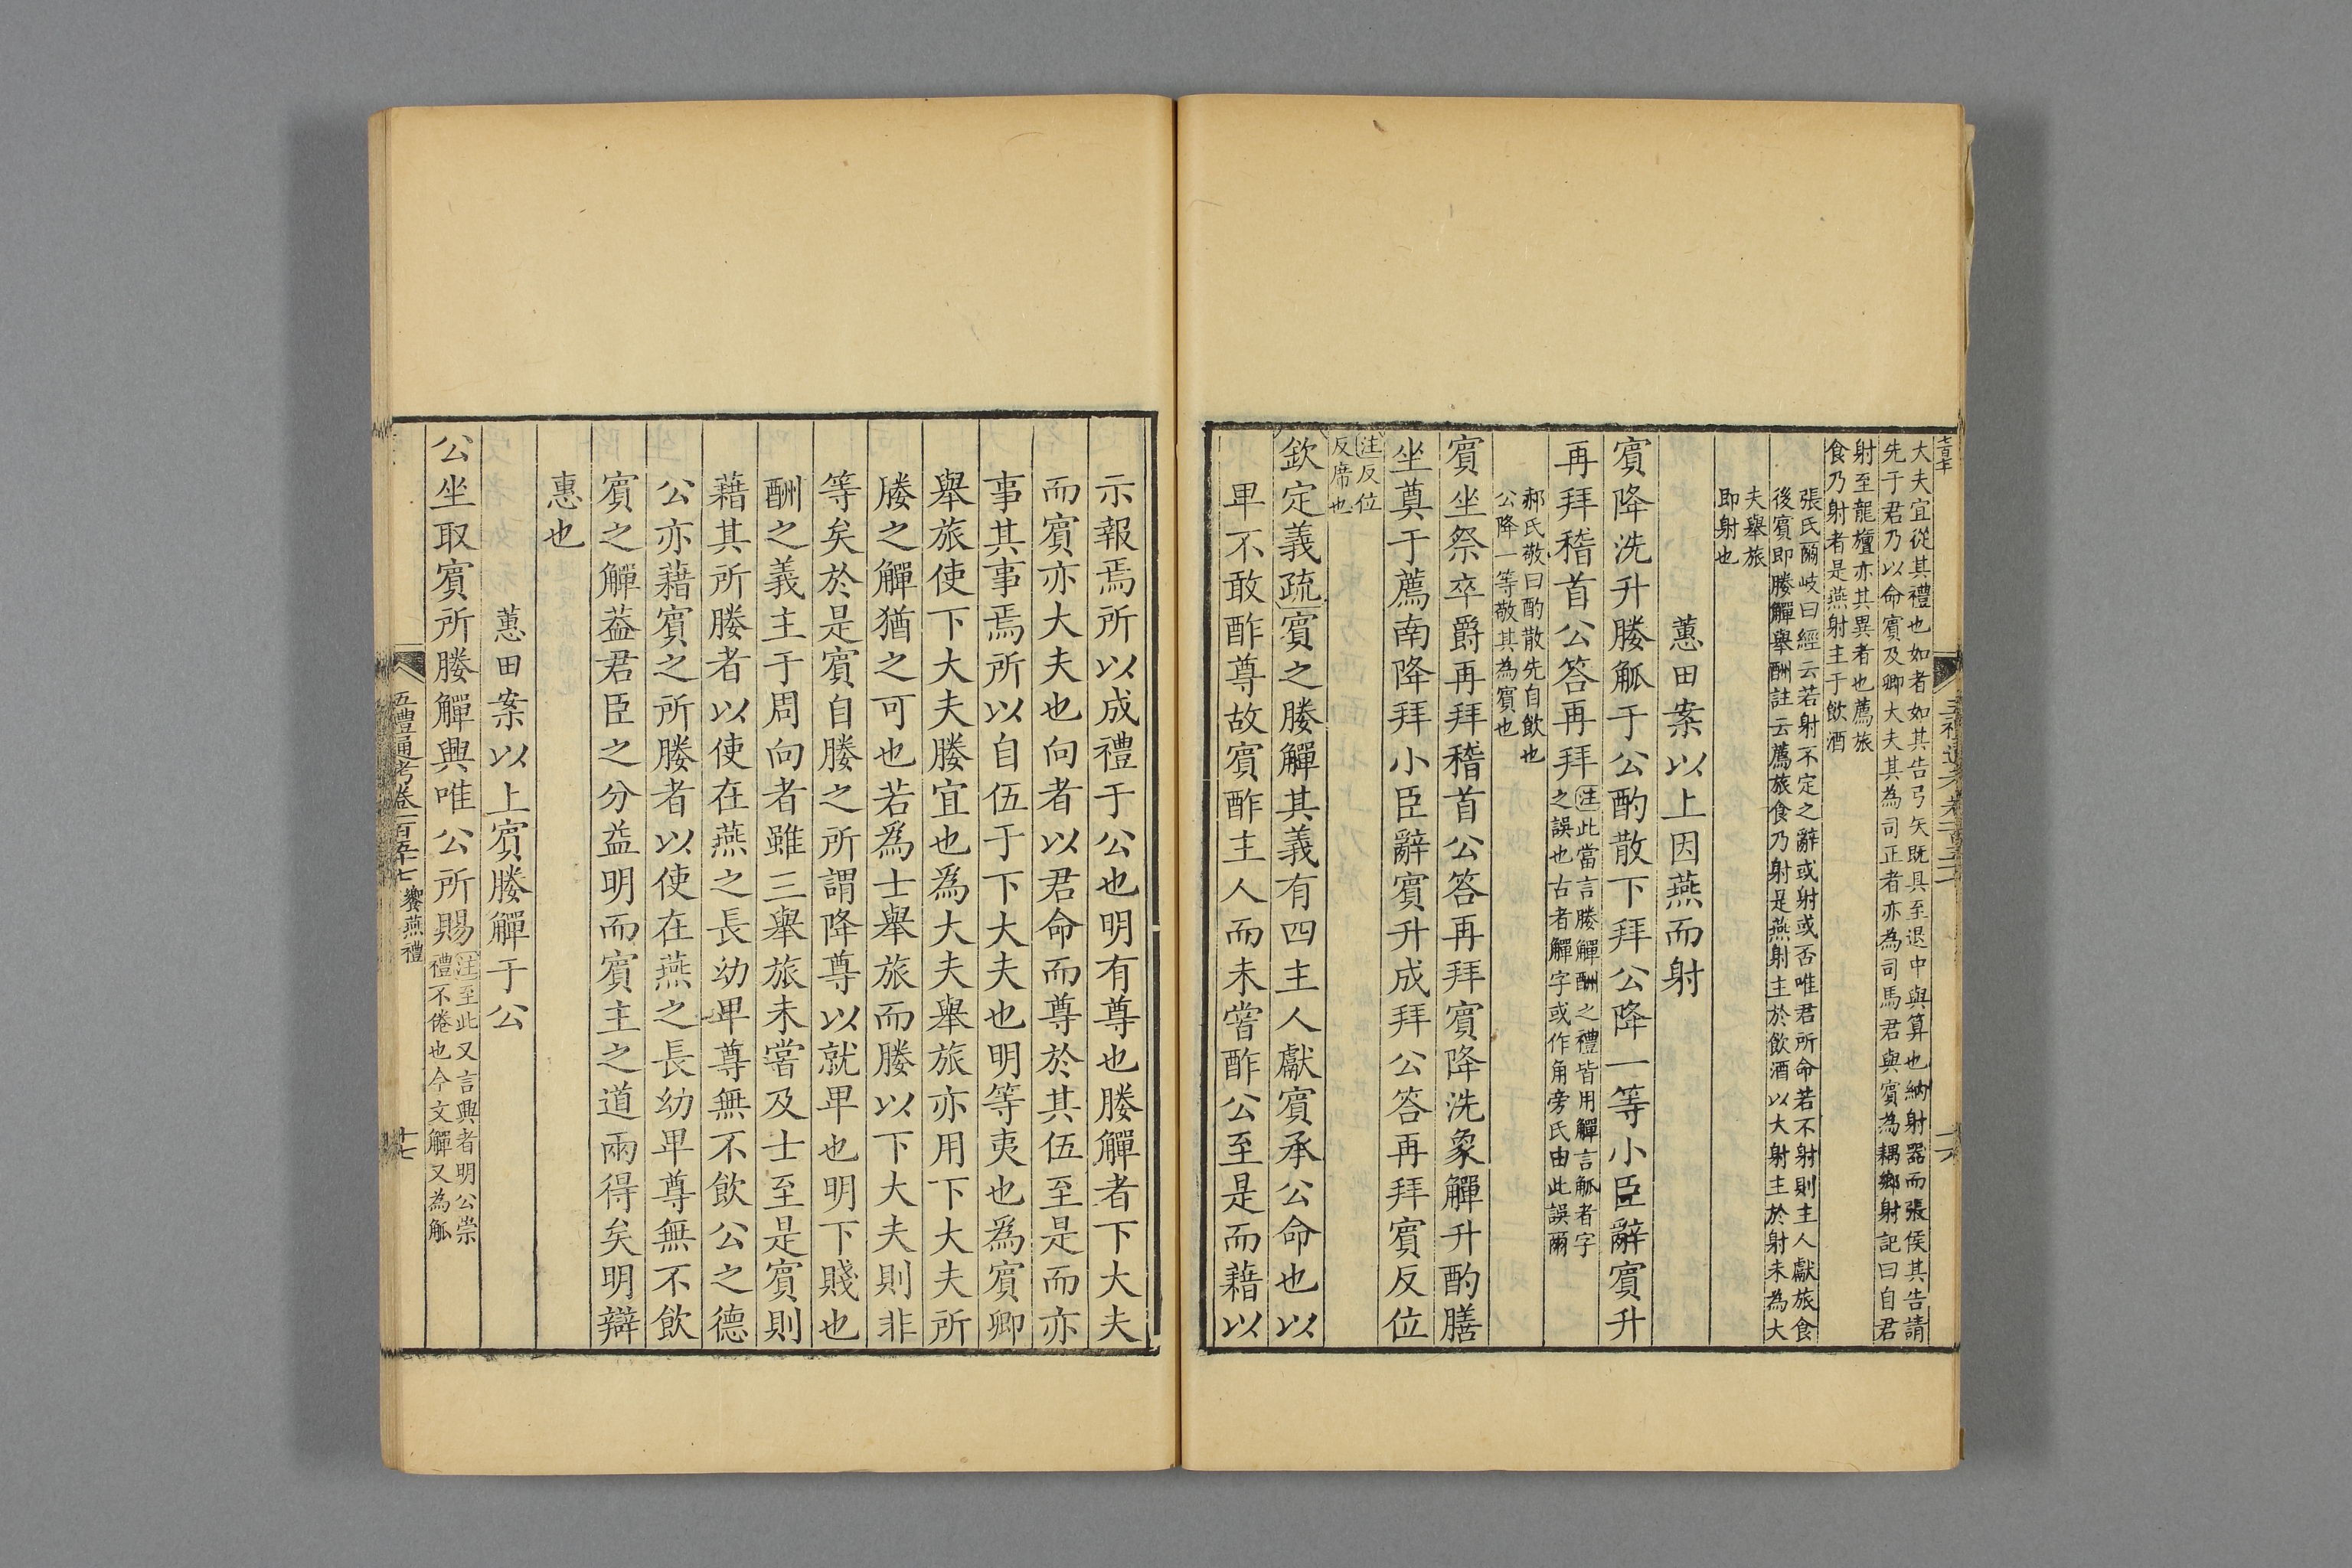 大夫宜從其禮也如者如其告弓矢既具至退中與算也納射器而張侯其告請
先于君乃以命賓及卿大夫其為司正者亦為司馬君與賓為耦鄉射記曰自君
射至龍旜亦其異者也薦旅
食乃射者是燕射主于飲酒
張氏爾岐曰經云若射不定之辭或射或否唯君所命若不射則主人獻旅食
後賓即媵觶舉酬註云薦旅食乃射是燕射主於飲酒以大射主於射未為大
夫舉旅
即射也
蕙田案以上因燕而射
賓降洗升媵觚于公酌散下拜公降一等小臣辭賓升
再拜稽首公答再拜注此當言媵觶酬之禮皆用觶言觚者字
之誤也古者觶字或作角旁氏由此誤爾
郝氏敬曰酌散先自飲也
公降一等敬其為賓也
賓坐祭卒爵再拜稽首公答再拜賓降洗象觶升酌膳
坐奠于薦南降拜小臣辭賓升成拜公答再拜賓反位
注反位
反席也
欽定義疏賓之媵觶其義有四主人獻賓承公命也以
卑不敢酢尊故賓酢主人而未嘗酢公至是而藉以
示報焉所以成禮于公也明有尊也媵觶者下大夫
而賓亦大夫也向者以君命而尊於其伍至是而亦
事其事焉所以自伍于下大夫也明等夷也為賓卿
舉旅使下大夫媵宜也為大夫舉旅亦用下大夫所
媵之觶猶之可也若為士舉旅而媵以下大夫則非
等矣於是賓自媵之所謂降尊以就卑也明下賤也
酬之義主于周向者雖三舉旅未嘗及士至是賓則
藉其所媵者以使在燕之長幼卑尊無不飲公之德
公亦藉賓之所媵者以使在燕之長幼卑尊無不飲
賓之觶葢君臣之分益明而賓主之道兩得矣明辯
惠也
蕙田案以上賓媵觶于公
公坐取賓所媵觶興唯公所賜注至此又言興者明公崇
禮不倦也今文觶又為觚
五禮通考卷一百五十七 饗燕禮
十七